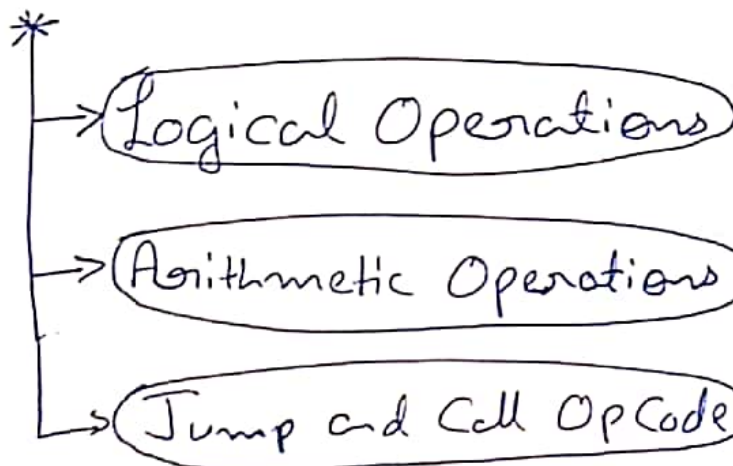 Logical Operations
Arithmetic Operations
Jump and Call OpCode